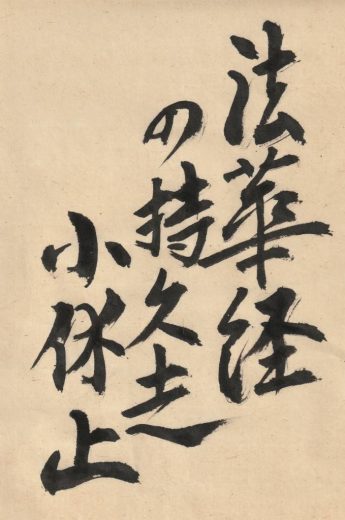 法華経
の持久走
小休止